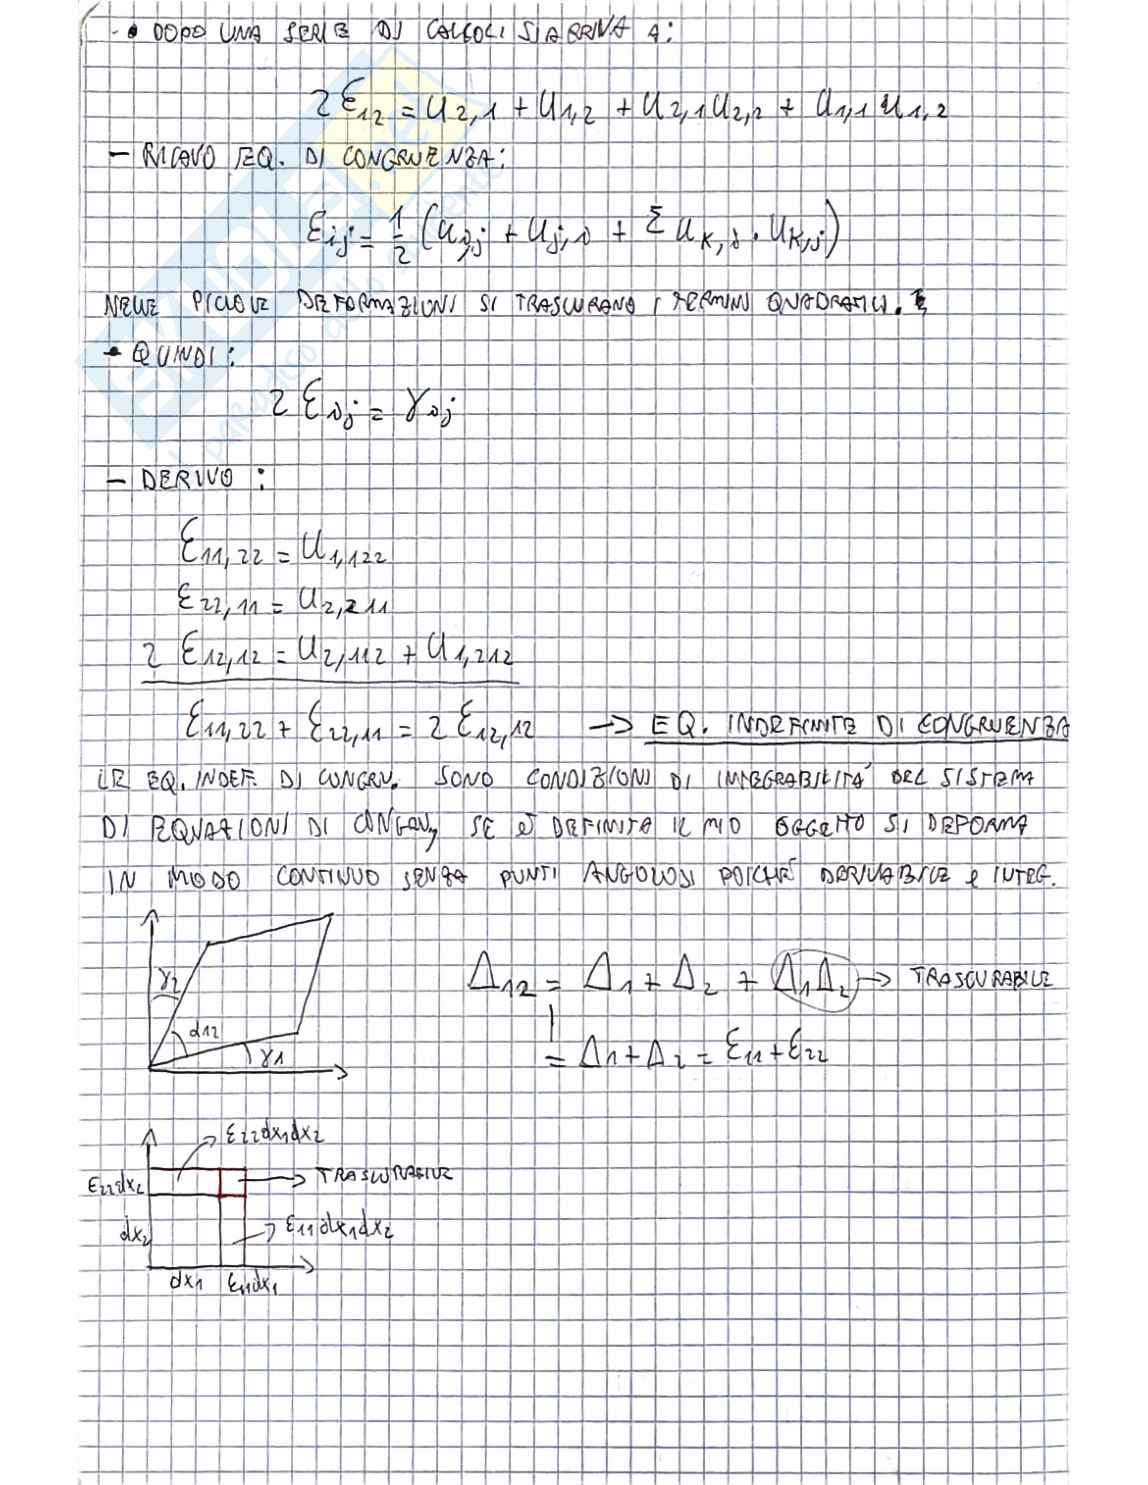 • DOPO UNA SERIE DI CALCOLI SI ARRIVA A:
2 ε12 = u2,1 + u1,2 + u2,1 u2,2 + u1,1 u1,2
– RICAVO EQ. DI CONGRUENZA:
εij = 1/2 (ui,j + uj,i + Σ uK,i · uK,j)
NELLE PICCOLE DEFORMAZIONI SI TRASCURANO I TERMINI QUADRATICI.
• QUINDI:
2 εij = γij
– DERIVO:
ε11,22 = u1,122
ε22,11 = u2,211
2 ε12,12 = u2,112 + u1,212
ε11,22 + ε22,11 = 2 ε12,12 → EQ. INDEFINITE DI CONGRUENZA
LE EQ. INDEF. DI CONGRU. SONO CONDIZIONI DI INTEGRABILITÀ DEL SISTEMA
DI EQUAZIONI DI CONGRU, SE È DEFINITA IL MIO OGGETTO SI DEFORMA
IN MODO CONTINUO SENZA PUNTI ANGOLOSI POICHÉ DERIVABILE e INTEG.
γ2
α12
γ1
Δ12 = Δ1 + Δ2 + Δ1Δ2 → TRASCURABILE
= Δ1 + Δ2 = ε11 + ε22
ε22dx1dx2
ε22dx2
→ TRASCURABILE
dx2
ε11dx1dx2
dx1
ε11dx1